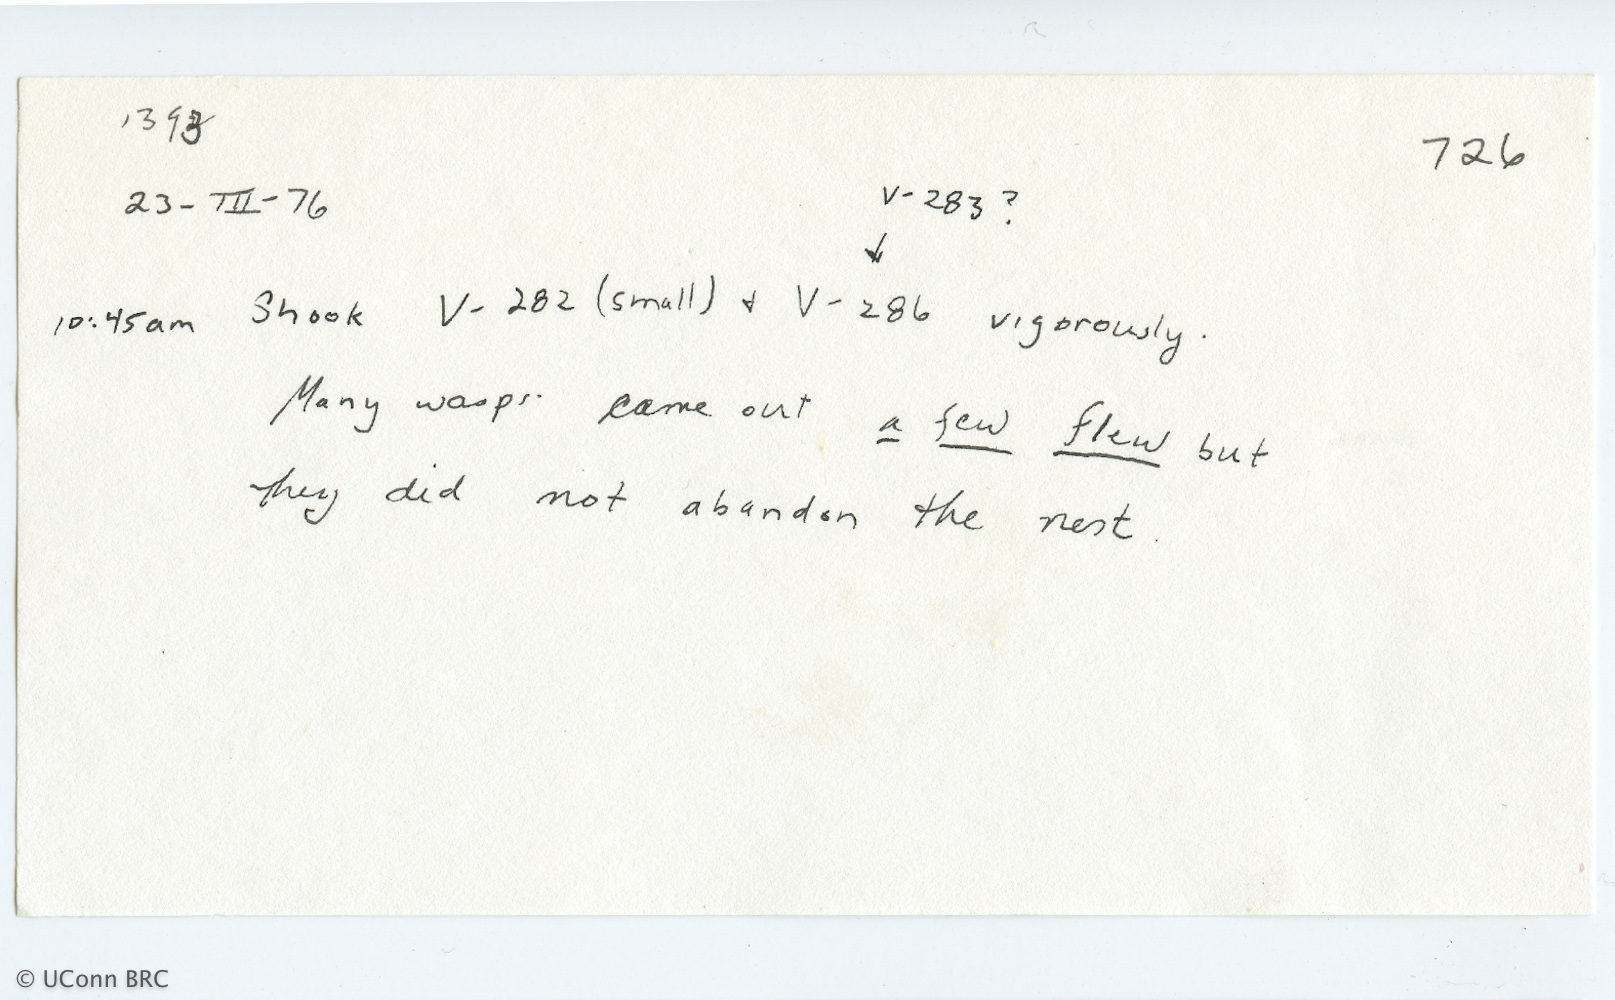 1393
726
23-III-76
V-283?
↓
10:45am Shook V-282 (small) & V-286 vigorously.
Many wasps came out a few flew but
they did not abandon the nest.
© UConn BRC